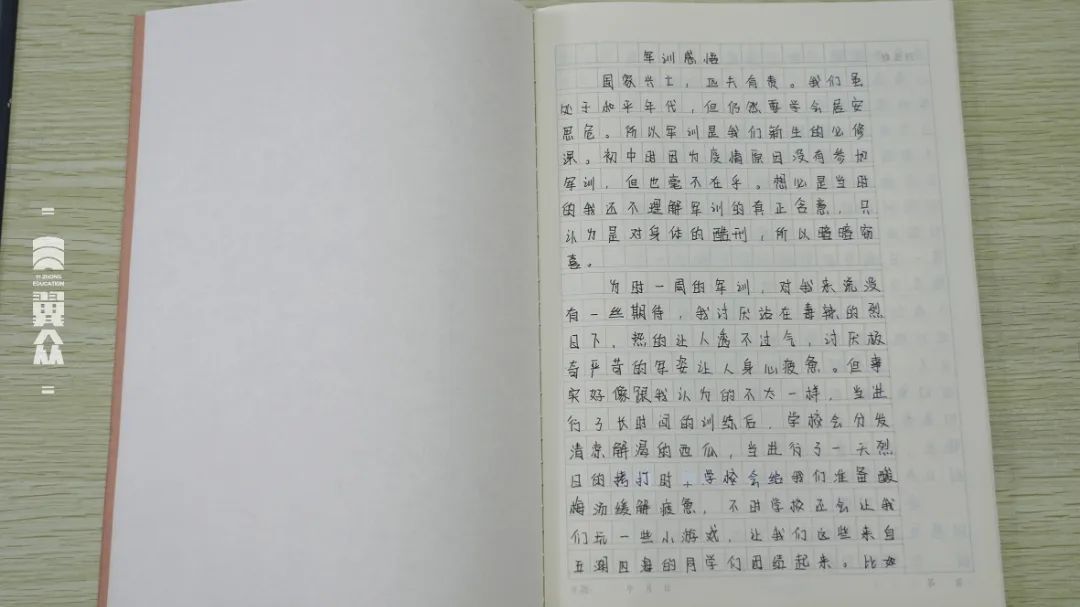 YI ZHONG
EDUCATION
翼众
军训感悟
国家兴亡,匹夫有责。我们虽
处于和平年代,但仍然要学会居安
思危。所以军训是我们新生的必修
课。初中时因为疫情原因没有参加
军训,但也毫不在乎。想必是当时
的我还不理解军训的真正含意,只
认为是对身体的酷刑,所以暗暗窃
喜。
为时一周的军训,对我来说没
有一些期待,我讨厌站在毒辣的烈
日下,热的让人透不过气,讨厌极
奇严苛的军姿让人身心疲惫。但事
实好像跟我认为的不太一样,当进
行了长时间的训练后,学校会分发
清凉解渴的西瓜,当进行了一天烈
日的拷打时,学校会给我们准备酸
梅汤缓解疲惫,不时学校还会让我
们玩一些小游戏,让我们这些来自
五湖四海的同学们团结起来。比如